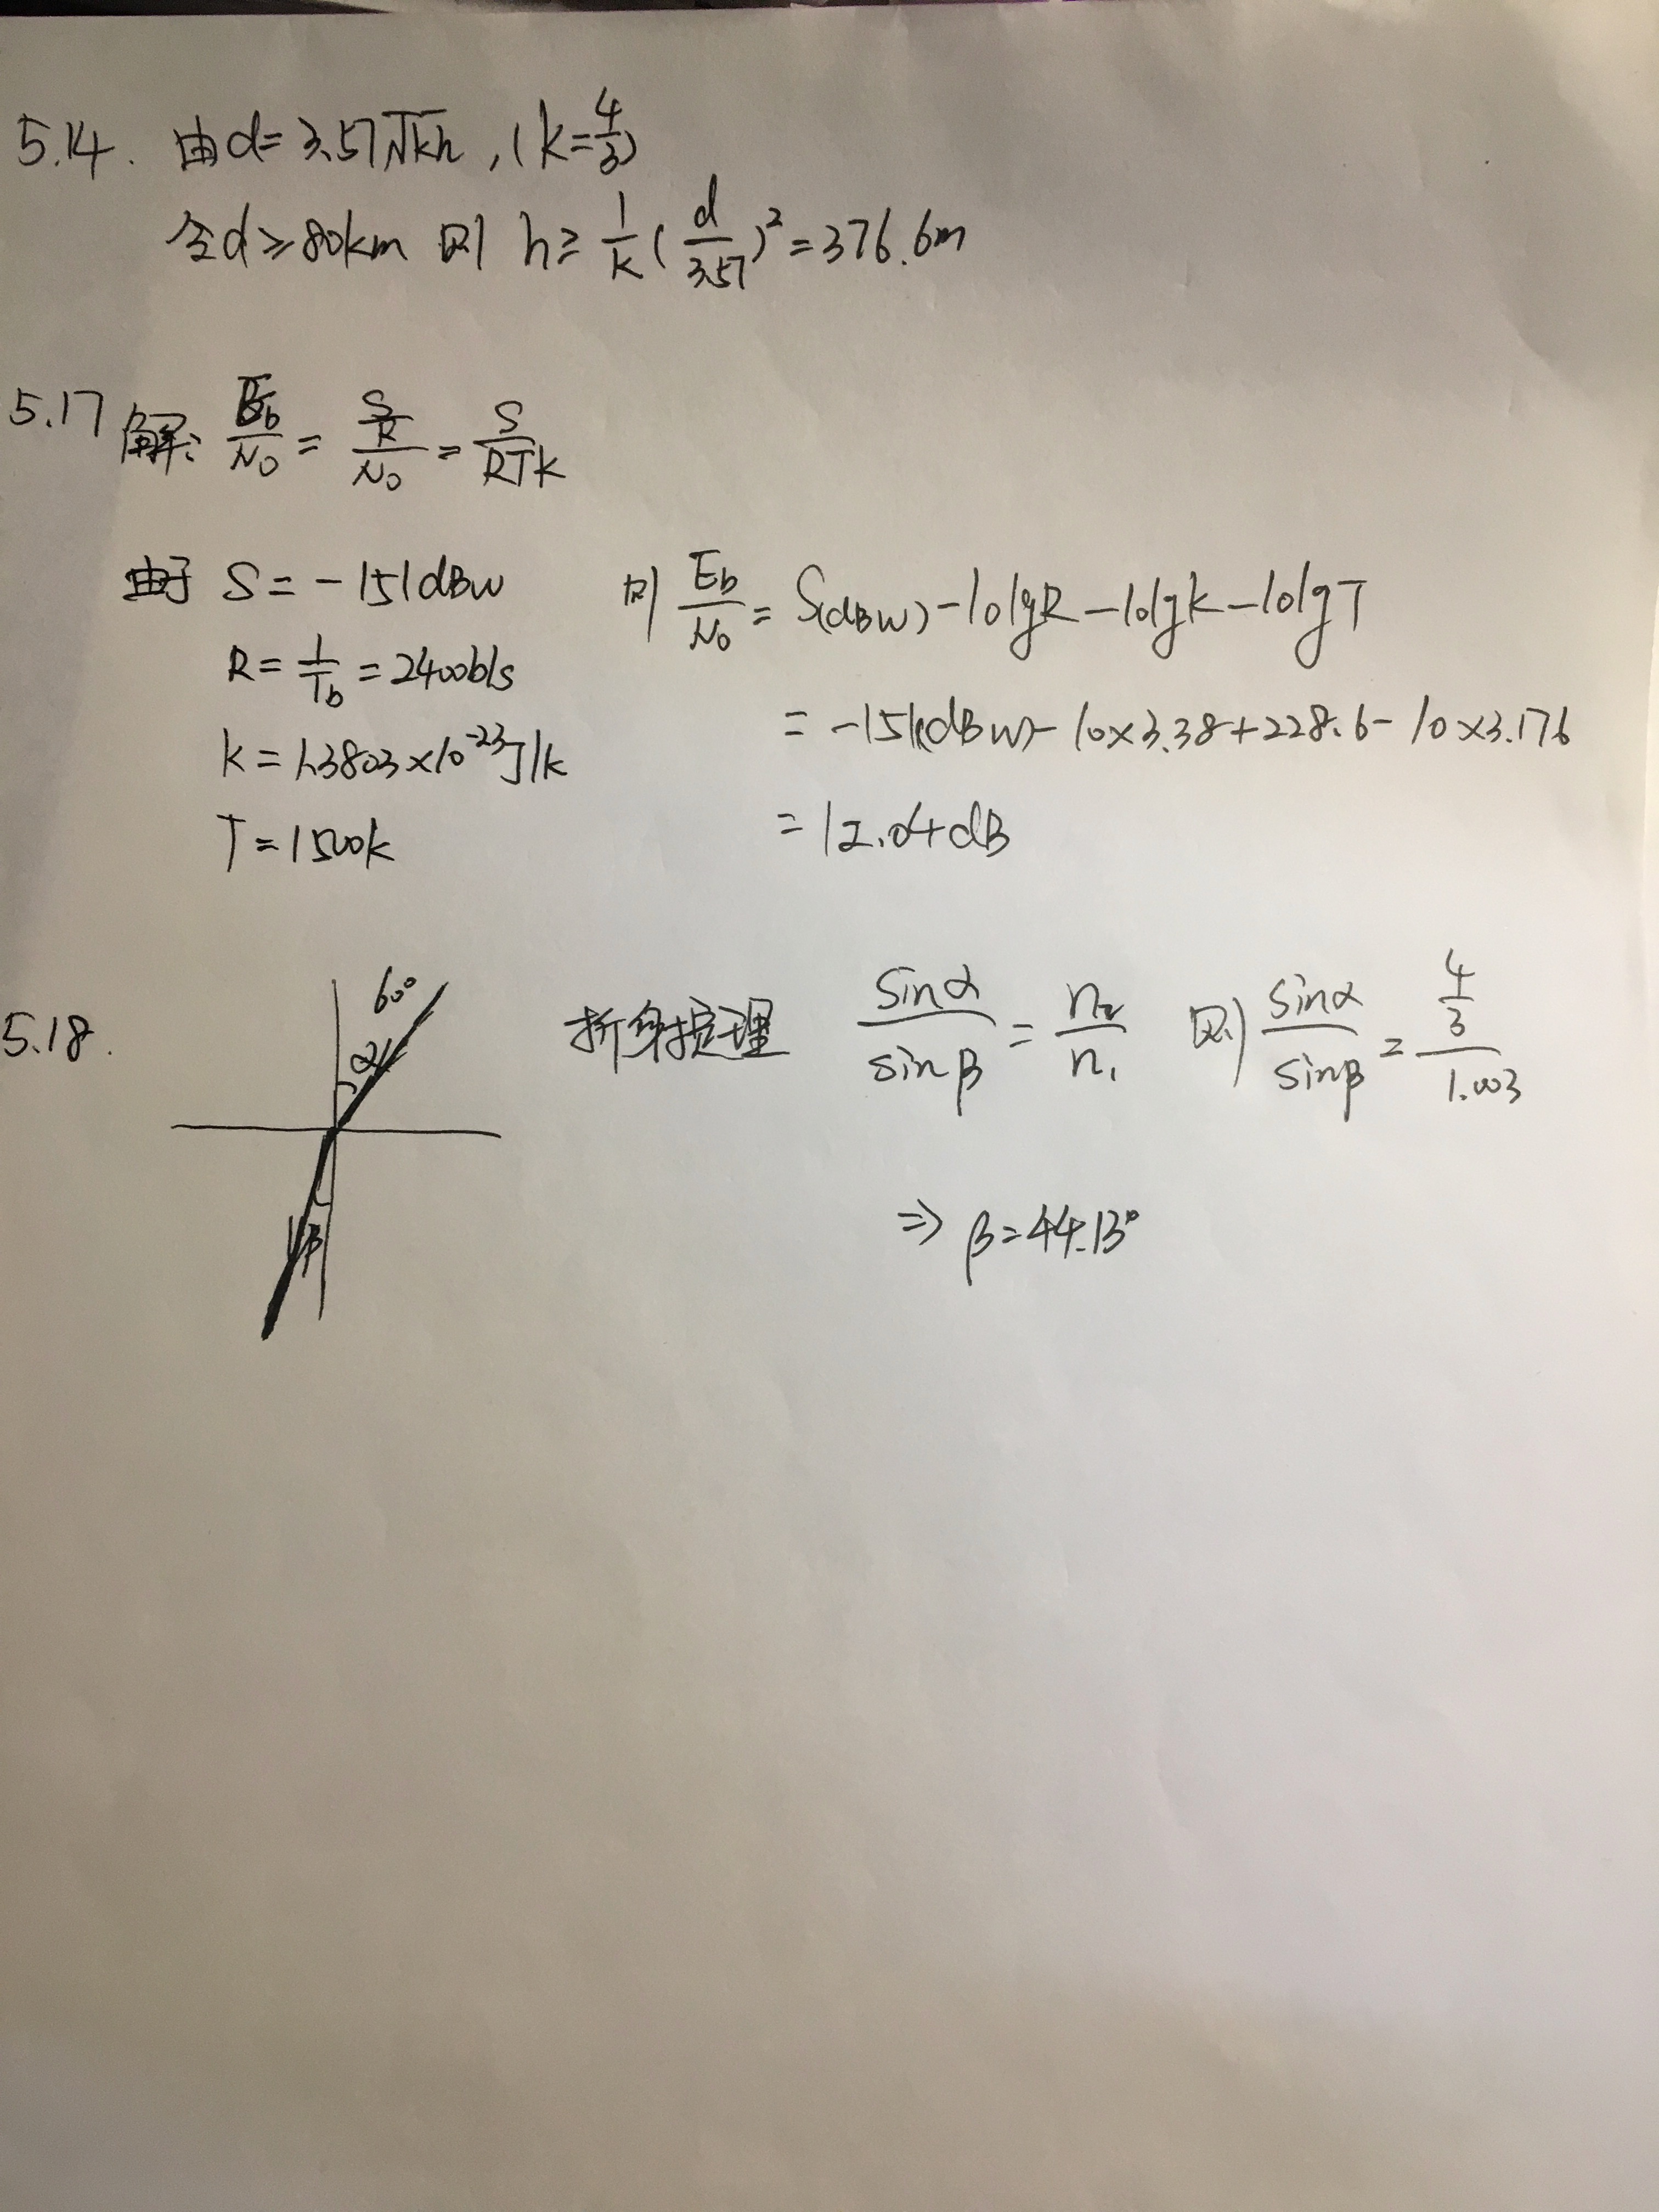 5.14. 由d=3.57√kh, (k=4/3)
令d≥80km 则 h≥1/k(d/3.57)²=376.6m
5.17 解: Eb/N0 = (S/R)/N0 = S/RTk
由于 S=-151dBW
R=1/Tb=2400b/s
k=1.3803×10⁻²³J/k
T=1500k
则 Eb/N0 = S(dBW)-10lgR-10lgk-10lgT
=-151(dBW)-10×3.38+228.6-10×3.176
=12.04dB
5.18.
60°
α
β
折射定理 sinα/sinβ = n2/n1 则 sinα/sinβ = (4/3)/1.003
⇒ β=44.13°